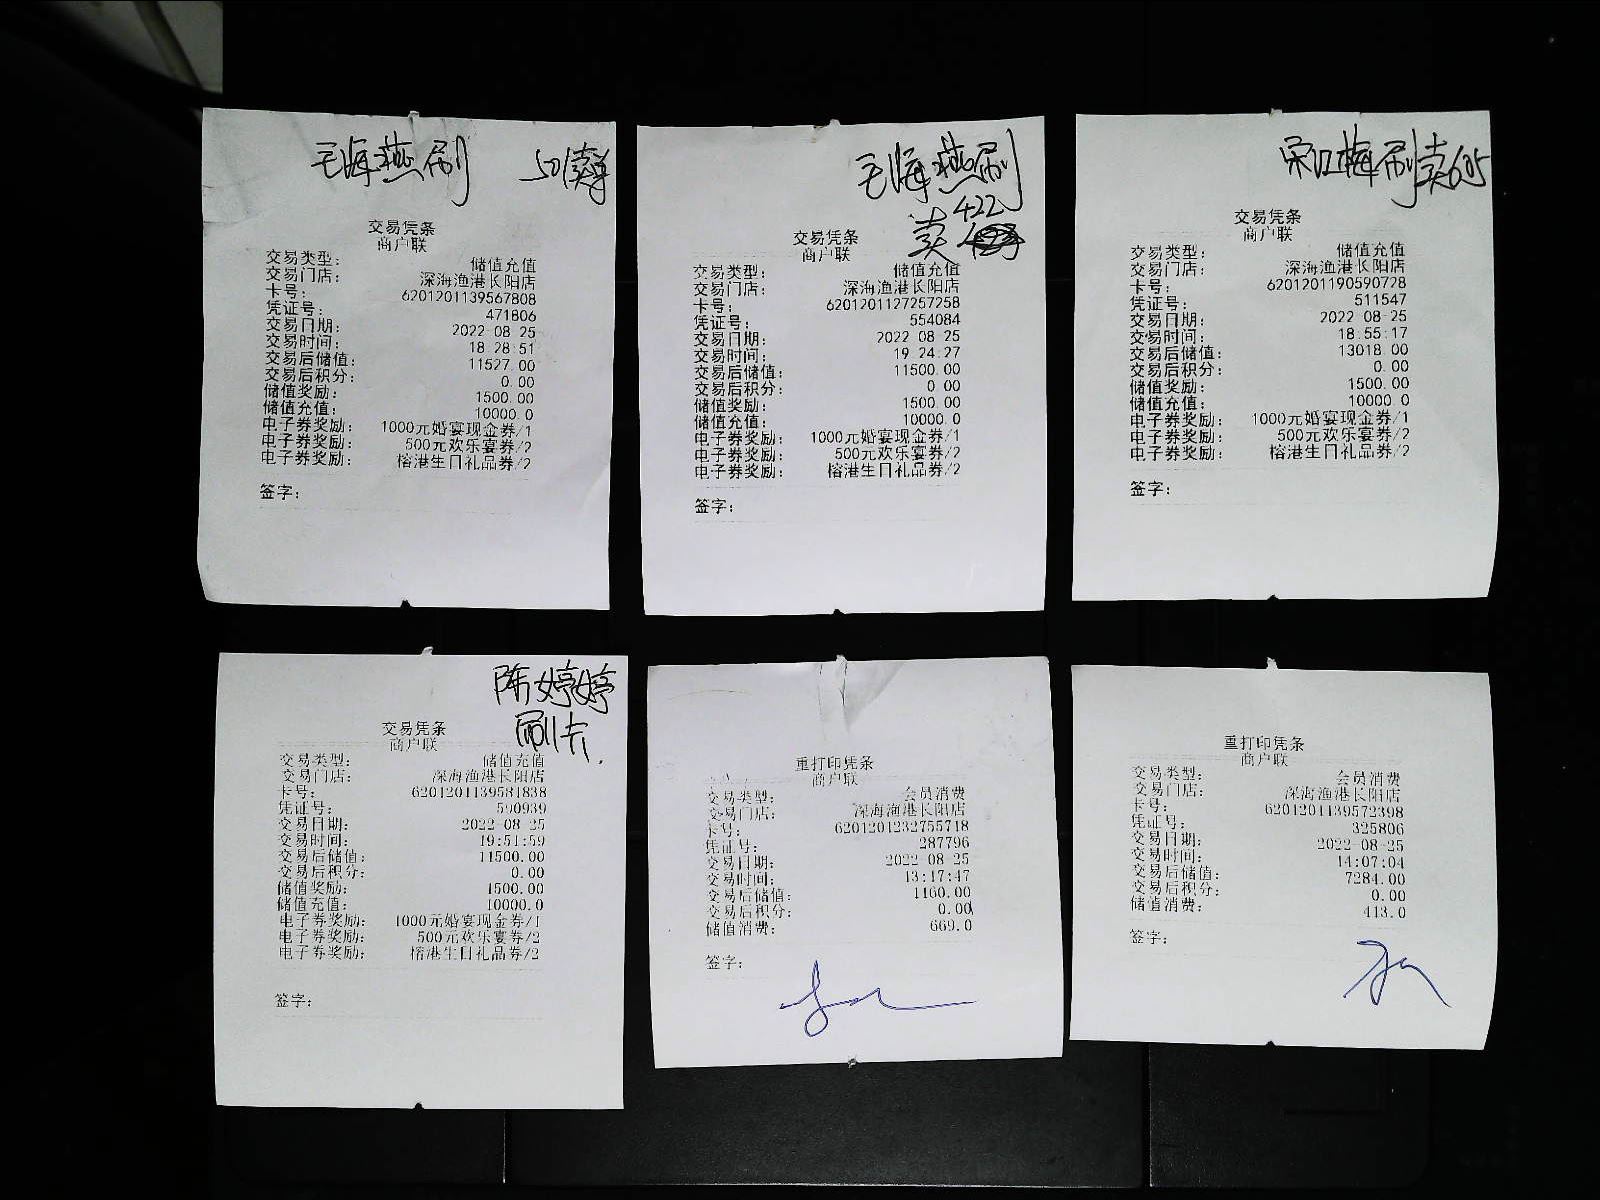 毛海燕刷
交易凭条
商户联
交易类型: 储值充值
交易门店: 深海渔港长阳店
卡号: 6201201139567808
凭证号: 471806
交易日期: 2022-08-25
交易时间: 18:28:51
交易后储值: 11527.00
交易后积分: 0.00
储值奖励: 1500.00
储值充值: 10000.0
电子券奖励: 1000元婚宴现金券/1
电子券奖励: 500元欢乐宴券/2
电子券奖励: 榕港生日礼品券/2
签字:
毛海燕刷
卖422
交易凭条
商户联
交易类型: 储值充值
交易门店: 深海渔港长阳店
卡号: 6201201127257258
凭证号: 554084
交易日期: 2022-08-25
交易时间: 19:24:27
交易后储值: 11500.00
交易后积分: 0.00
储值奖励: 1500.00
储值充值: 10000.0
电子券奖励: 1000元婚宴现金券/1
电子券奖励: 500元欢乐宴券/2
电子券奖励: 榕港生日礼品券/2
签字:
宋江梅刷卖605
交易凭条
商户联
交易类型: 储值充值
交易门店: 深海渔港长阳店
卡号: 6201201190590728
凭证号: 511547
交易日期: 2022-08-25
交易时间: 18:55:17
交易后储值: 13018.00
交易后积分: 0.00
储值奖励: 1500.00
储值充值: 10000.0
电子券奖励: 1000元婚宴现金券/1
电子券奖励: 500元欢乐宴券/2
电子券奖励: 榕港生日礼品券/2
签字:
陈婷婷
刷卡.
交易凭条
商户联
交易类型: 储值充值
交易门店: 深海渔港长阳店
卡号: 6201201139581838
凭证号: 590939
交易日期: 2022-08-25
交易时间: 19:51:59
交易后储值: 11500.00
交易后积分: 0.00
储值奖励: 1500.00
储值充值: 10000.0
电子券奖励: 1000元婚宴现金券/1
电子券奖励: 500元欢乐宴券/2
电子券奖励: 榕港生日礼品券/2
签字:
重打印凭条
商户联
交易类型: 会员消费
交易门店: 深海渔港长阳店
卡号: 6201201232755718
凭证号: 287796
交易日期: 2022-08-25
交易时间: 13:17:47
交易后储值: 1160.00
交易后积分: 0.00
储值消费: 669.0
签字:
重打印凭条
商户联
交易类型: 会员消费
交易门店: 深海渔港长阳店
卡号: 6201201139572398
凭证号: 325806
交易日期: 2022-08-25
交易时间: 14:07:04
交易后储值: 7284.00
交易后积分: 0.00
储值消费: 413.0
签字: